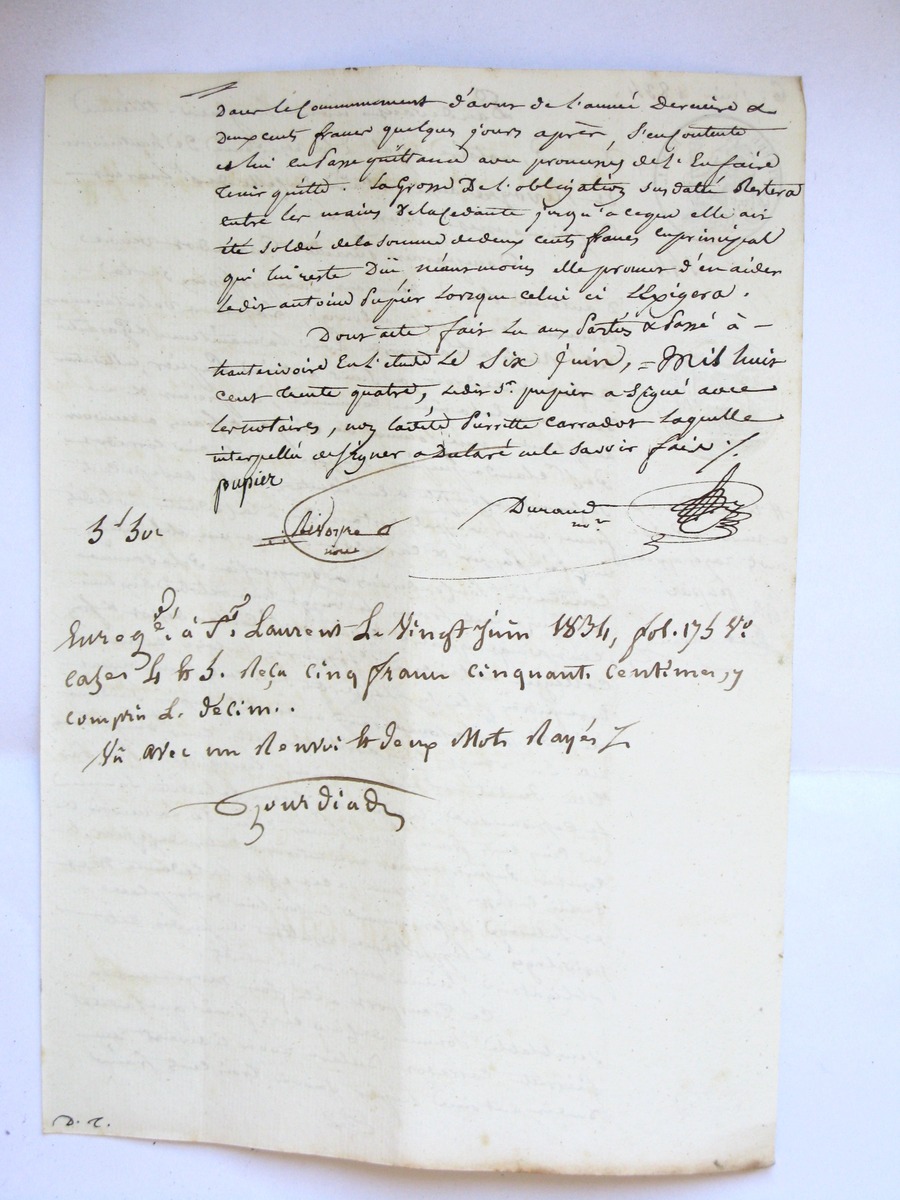 Dans le Commencement d'avril de l'année Derniere &
Deux cents francs quelques jours après, S'en Contente
et lui en Passe quittance avec promesses de l'En faire
tenir quitte. La Grosse De l'obligation Sus datée Restera
entre les mains de la Cedante jusqu'a ceque elle ait
été soldée de la Somme de deux cents francs en principal
qui lui reste Düe, néansmoins elle promet d'en aider
ledit antoine Pupier Lorsque celui ci L'Exigera.
Dont acte fait Lu aux Parties & Passé à
hauterivoire En l'etude Le Six Juin, = Mil huit
cent trente quatre, Ledit Sr. pupier a Signé avec
les notaires, non ladite Pierrette Carradot Laquelle
interpellée de signer a Declaré ne le Savoir faire /.
pupier
Durand
nore
Enregé. à St. Laurent Le Vingt Juin 1834, fol. 175 Vo.
cases 4 & 5. Reçu cinq francs cinquante centimes, y
compris Le décime.
Vû avec un Renvoi & deux Mots Rayés
D. T.